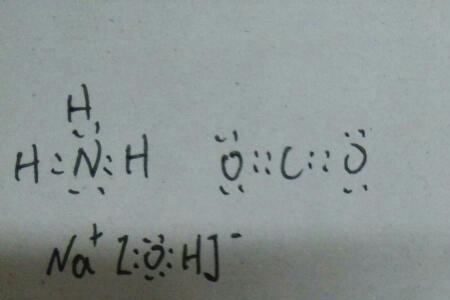 H
H:N̤̈:H Ö̤::C::Ö̤
Na⁺ [:Ö̤:H]⁻